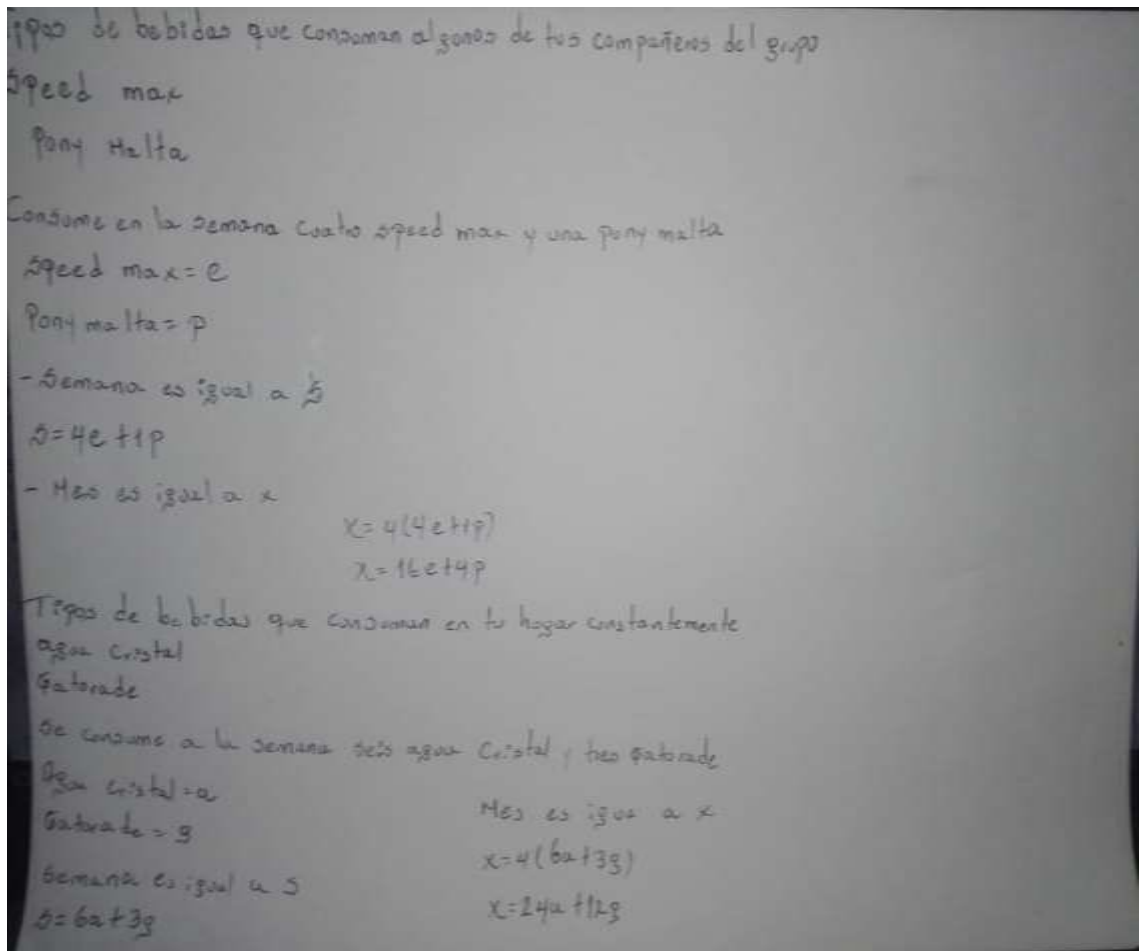 Tipos de bebidas que consuman algunos de tus compañeros del grupo
Speed max
Pony Malta
Consume en la semana cuatro speed max y una pony malta
Speed max = e
Pony malta = p
- Semana es igual a S
S = 4e + 1p
- Mes es igual a x
x = 4(4e+1p)
x = 16e+4p
Tipos de bebidas que consuman en tu hogar constantemente
agua Cristal
Gatorade
Se consume a la semana seis agua Cristal y tres gatorade
Agua cristal = a
Gatorade = g
Semana es igual a S
S = 6a + 3g
Mes es igua a x
x = 4(6a+3g)
x = 24a + 12g